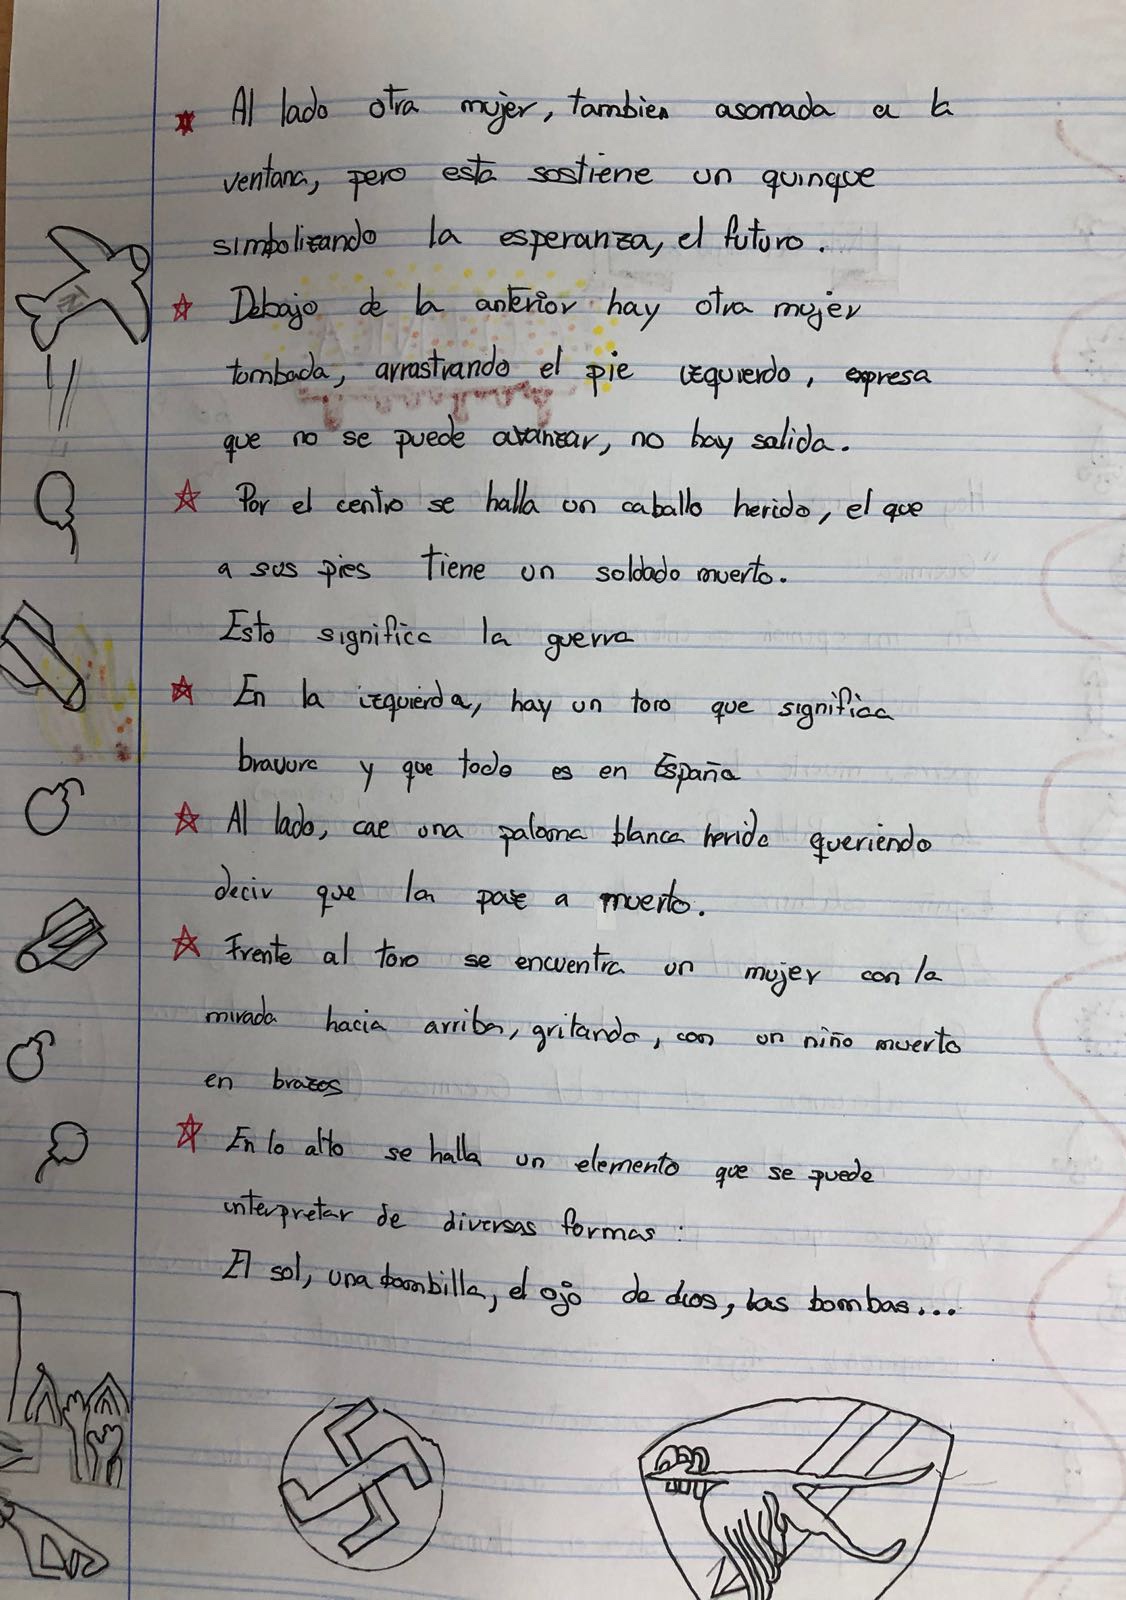 Al lado otra mujer, tambien asomada a la
ventana, pero esta sostiene un quinque
simbolizando la esperanza, el futuro.
Debajo de la anterior hay otra mujer
tombada, arrastrando el pie izquierdo, expresa
que no se puede avanzar, no hay salida.
Por el centro se halla un caballo herido, el que
a sus pies tiene un soldado muerto.
Esto significa la guerra
En la izquierda, hay un toro que significa
bravura y que todo es en España
Al lado, cae una paloma blanca herida queriendo
decir que la paz a muerto.
Frente al toro se encuentra un mujer con la
mirada hacia arriba, gritando, con un niño muerto
en brazos
En lo alto se halla un elemento que se puede
interpretar de diversas formas:
El sol, una bombilla, el ojo de dios, las bombas...